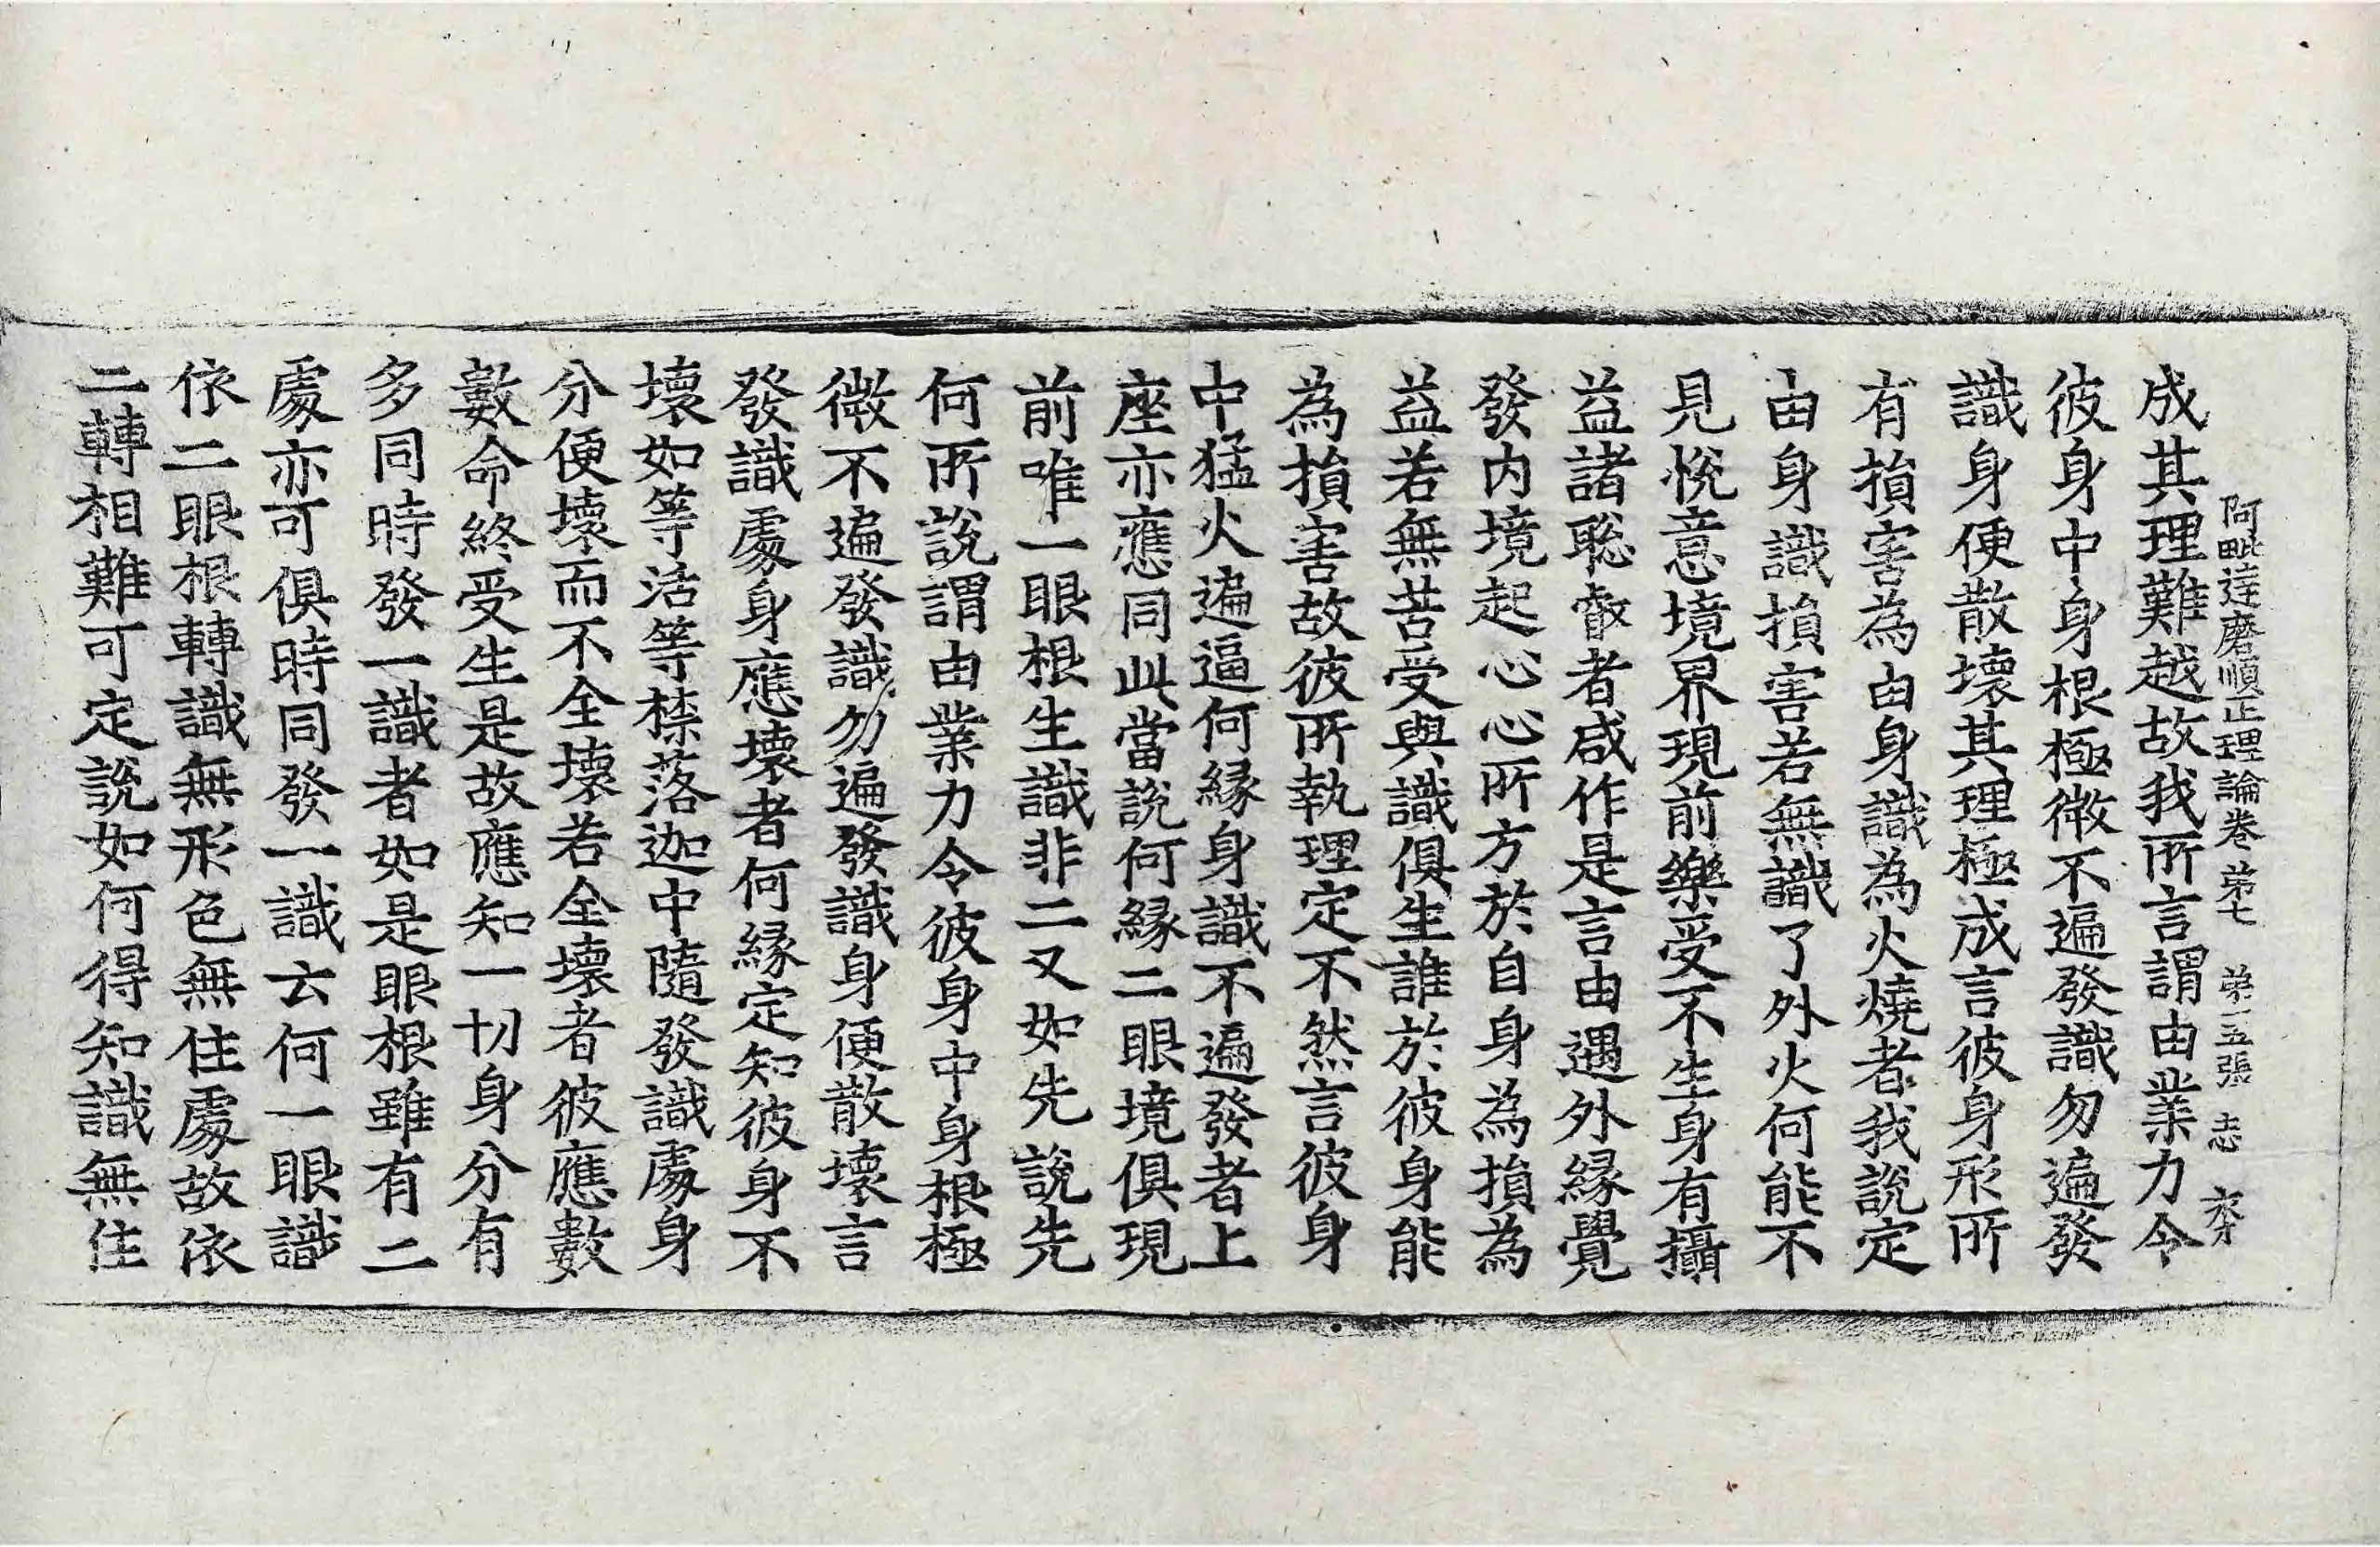 阿毗達磨順正理論卷苐七 苐十五張 志
成其理難越故我所言謂由業力令
彼身中身根極微不遍發識勿遍發
識身便散壞其理極成言彼身形所
有損害為由身識為火燒者我說定
由身識損害若無識了外火何能不
見悅意境界現前樂受不生身有攝
益諸聡叡者咸作是言由遇外緣覺
發內境起心心所方於自身為損為
益若無苦受與識俱生誰於彼身能
為損害故彼所執理定不然言彼身
中猛火遍逼何緣身識不遍發者上
座亦應同此當說何緣二眼境俱現
前唯一眼根生識非二又如先說先
何所說謂由業力令彼身中身根極
微不遍發識勿遍發識身便散壞言
發識處身應壞者何緣定知彼身不
壞如等活等㮈落迦中隨發識處身
分便壞而不全壞若全壞者彼應數
數命終受生是故應知一切身分有
多同時發一識者如是眼根雖有二
處亦可俱時同發一識云何一眼識
依二眼根轉識無形色無住處故依
二轉相難可定說如何得知識無住